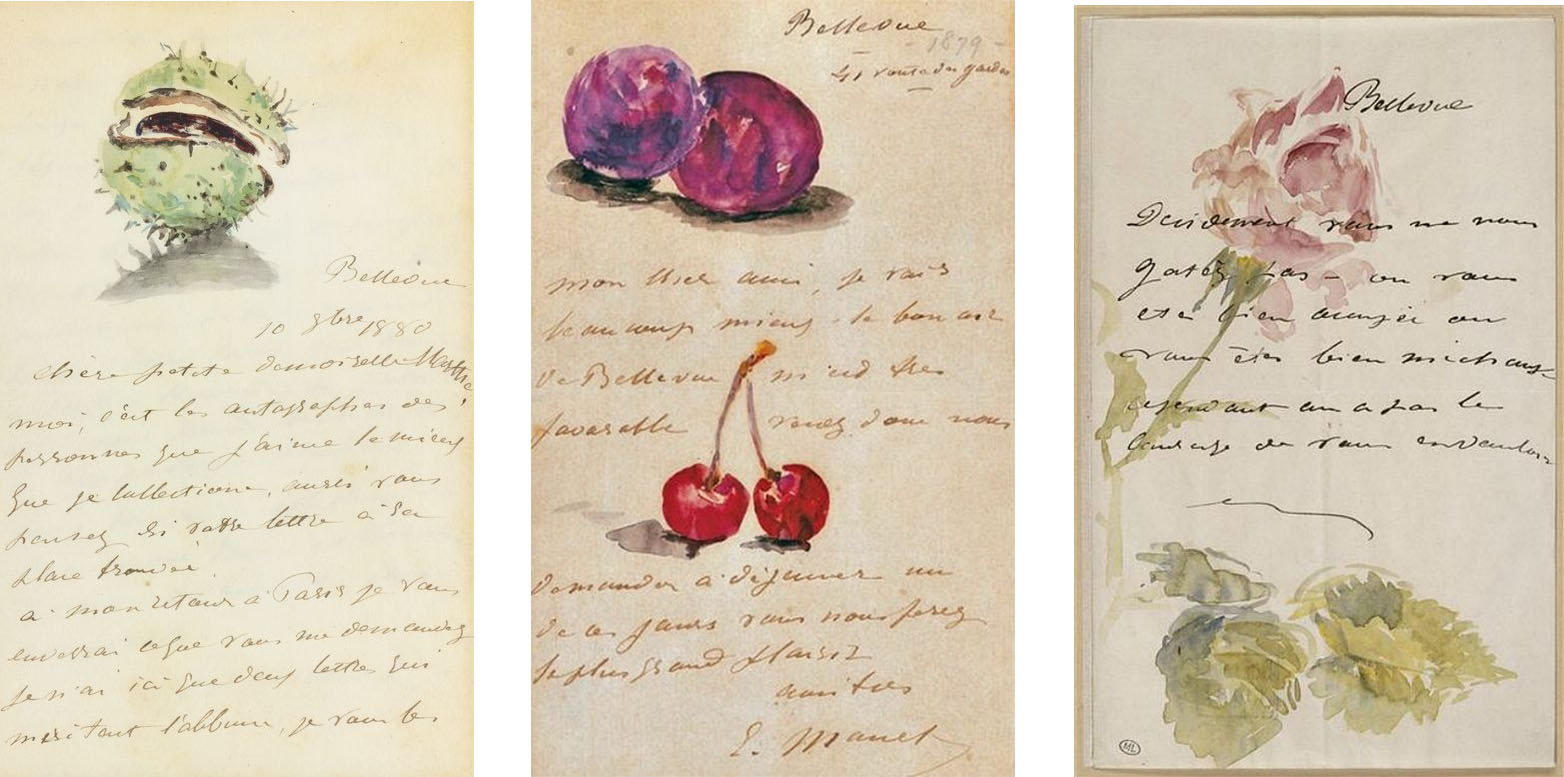 Bellevue
10 9bre 1880
chère petite demoiselle Marthe
moi, c'est les autographes des
personnes que j'aime le mieux
que je collectionne, aussi vous
pensez si votre lettre a sa
place trouvée.
à mon retour à Paris je vous
enverrai ce que vous me demandez
je n'ai ici que deux lettres qui
méritent l'album, je vous les
Bellevue
- 1879 -
41 route des gardes
mon cher ami, je vais
beaucoup mieux - le bon air
de Bellevue m'est très
favorable venez donc nous
demander à déjeuner un
de ces jours vous nous ferez
le plus grand plaisir
amitiés
E. Manet
Bellevue
Décidement vous ne nous
gatez pas - ou vous
etes bien occupée ou
vous êtes bien méchante
cependant on a pas le
courage de vous en vouloir
ML